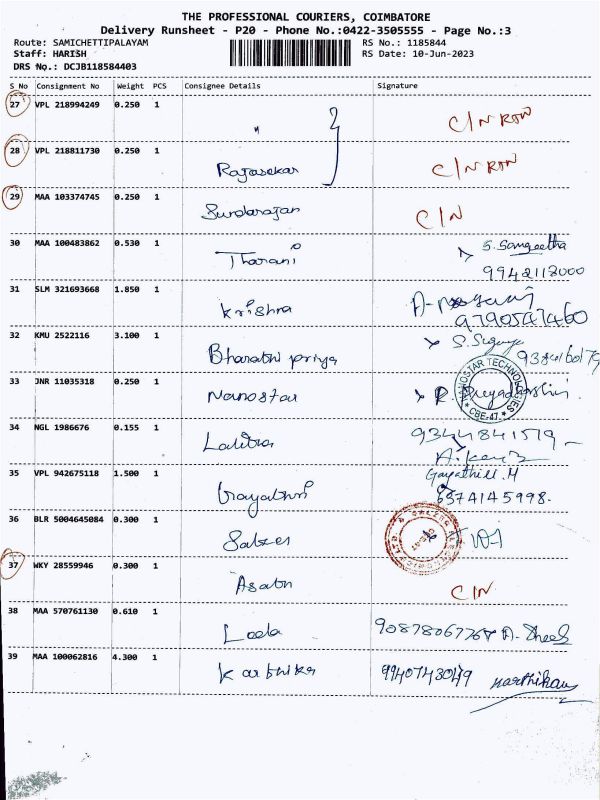 THE PROFESSIONAL COURIERS, COIMBATORE
Delivery Runsheet - P20 - Phone No.:0422-3505555 - Page No.:3
Route: SAMICHETTIPALAYAM RS No.: 1185844
Staff: HARISH RS Date: 10-Jun-2023
DRS No.: DCJB118584403
S No Consignment No Weight PCS Consignee Details Signature
27 VPL 218994249 0.250 1 " C/N RTN
28 VPL 218811730 0.250 1 Rajasekar C/N RTN
29 MAA 103374745 0.250 1 Sundarajan C/N
30 MAA 100483862 0.530 1 Tharani S. Sangeetha
9942113000
31 SLM 321693668 1.850 1 Krishna
9790547460
32 KMU 2522116 3.100 1 Bharathi priya
33 JNR 11035318 0.250 1 Nanostar R. Priyadharshini
NANOSTAR TECHNOLOGIES
CBE-47.
34 NGL 1986676 0.155 1 Lalitha 9344841519
35 VPL 942675118 1.500 1 Gayathri Gayathiri. M
6374145998.
36 BLR 5004645084 0.300 1 Salzer
37 WKY 28559946 0.300 1 C/N
38 MAA 570761130 0.610 1 Leela 9087806776
39 MAA 100062816 4.300 1 Karthika 9940743049 Karthikau